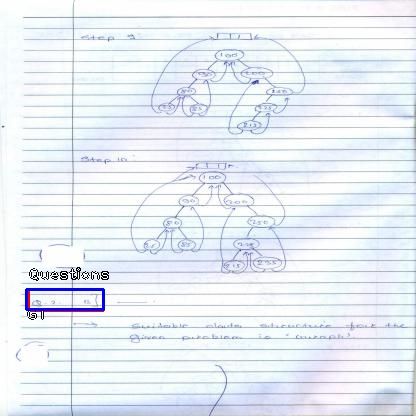 Step 9:
100
90 200
80 250
225
215
Step 10:
100
90 200
80 250
85
215 235
Questions
Q-2. B)
G)
Suitable data structure for the
given problem is "Graph".